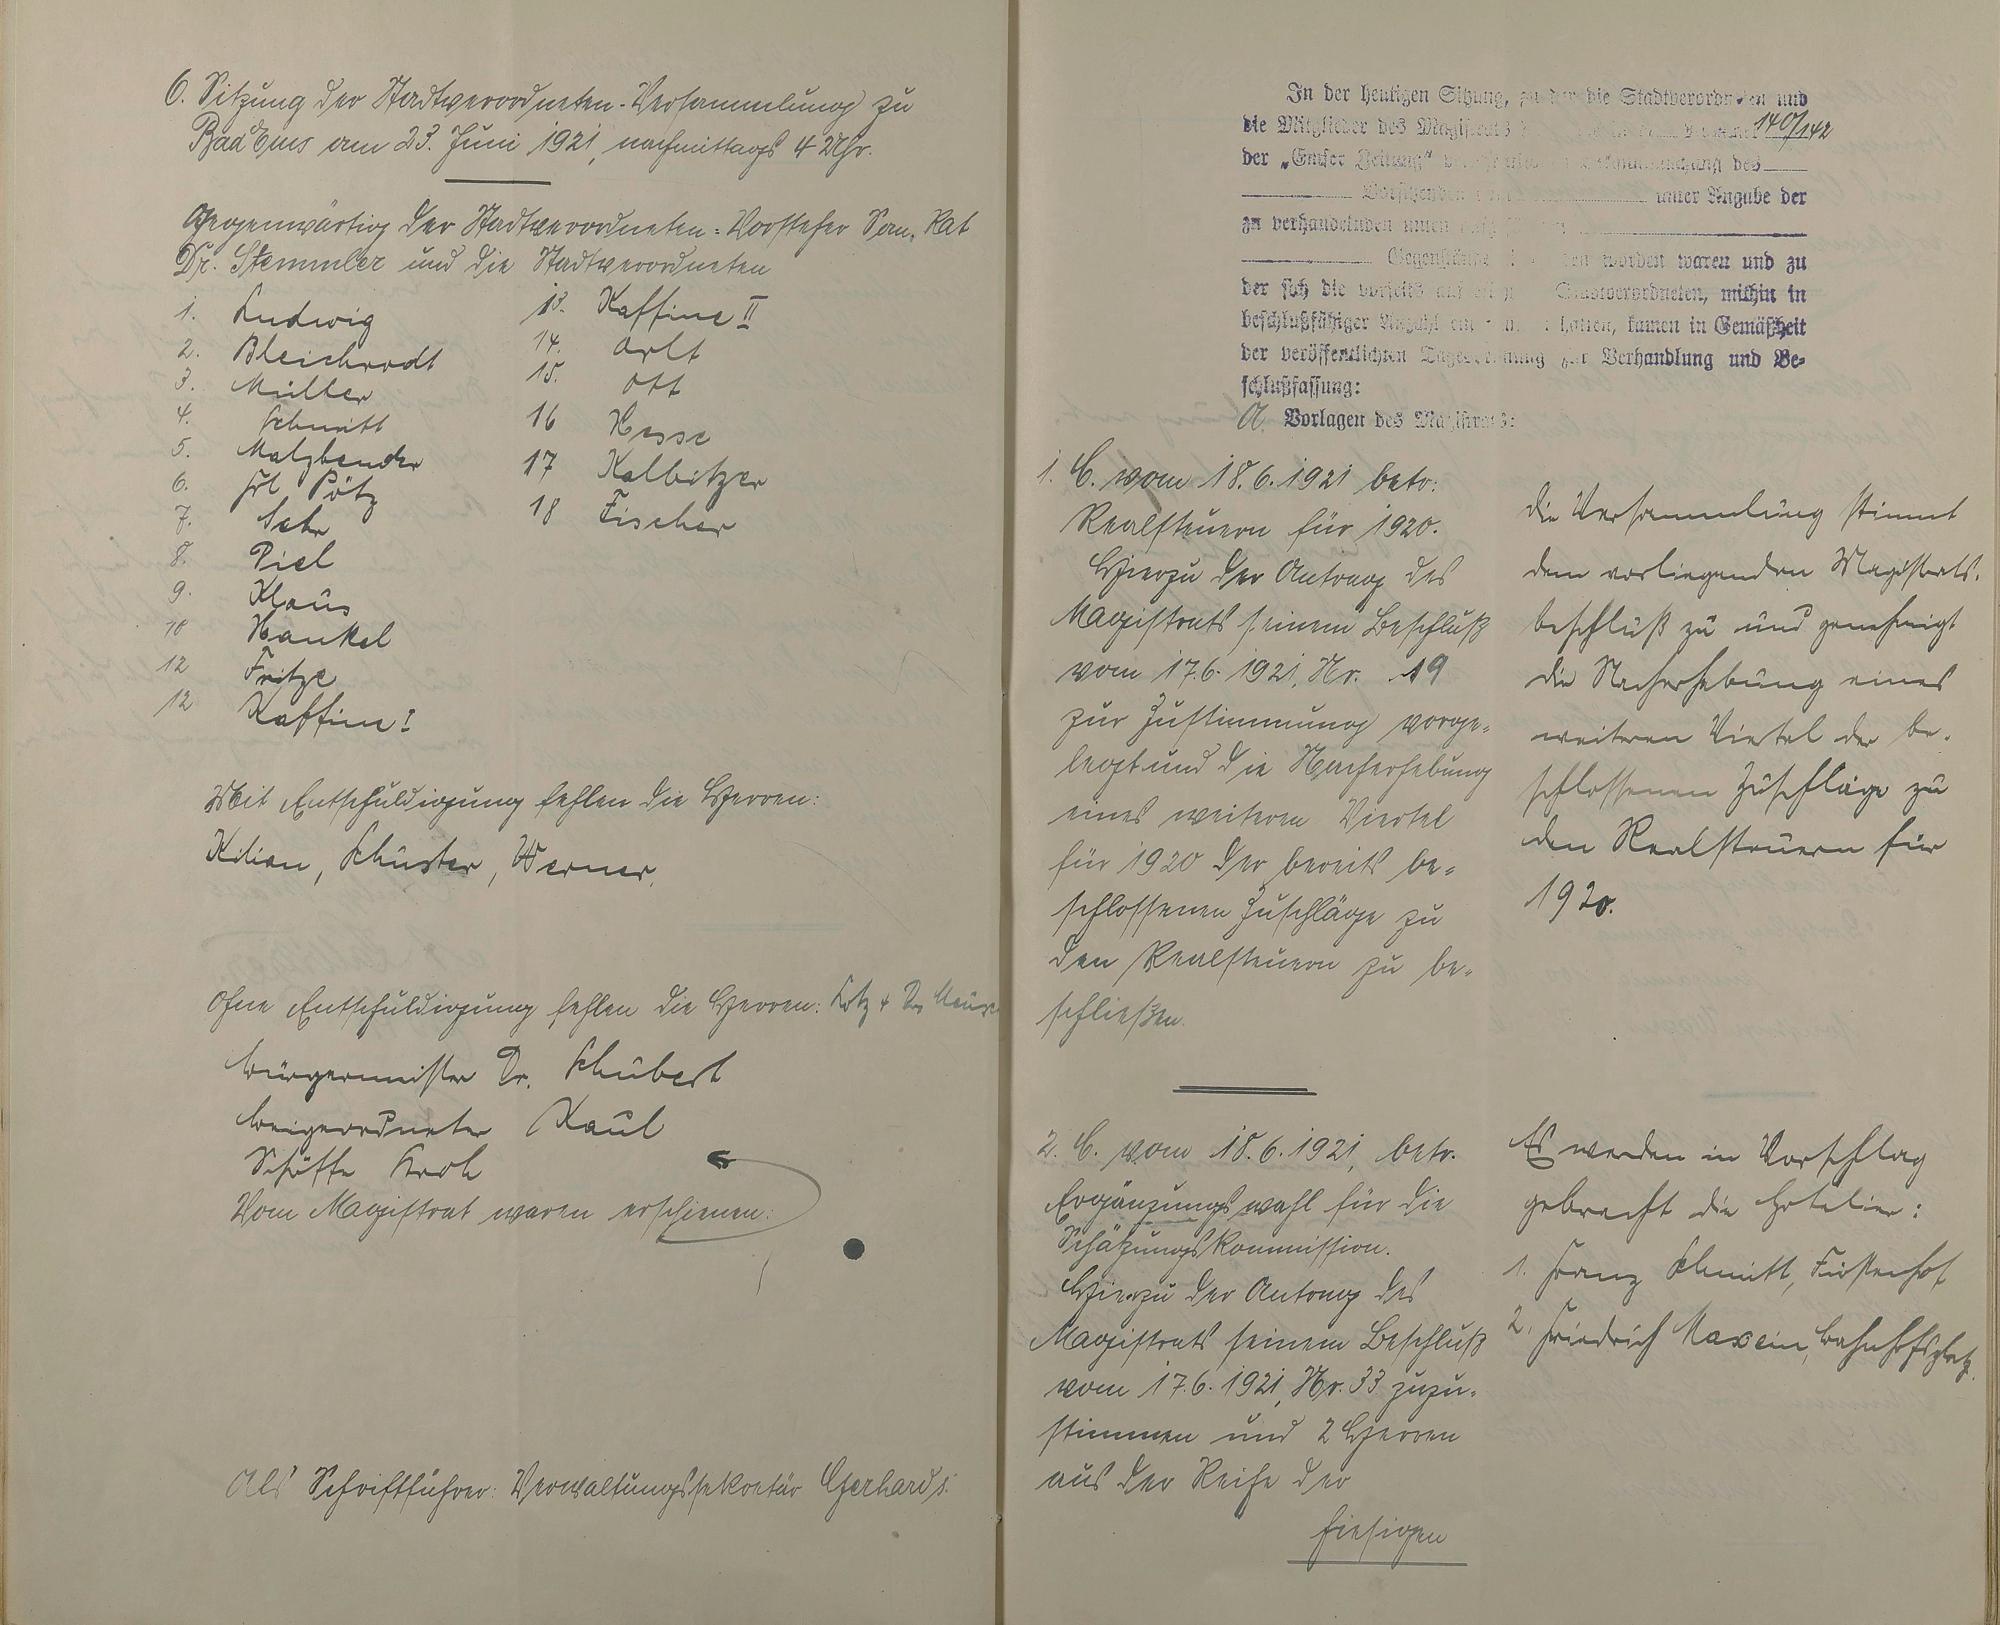 6. Sitzung der Stadtverordneten-Versammlung zu
Bad Ems am 23. Juni 1921, nachmittags 4 Uhr.
Gegenwärtig der Stadtverordneten-Vorsteher San. Rat
Dr. Stemmler und die Stadtverordneten
1. Ludwig
2. Bleichrodt
3. Müller
4. Schmitt
5. Malzbender
6. Frl Pötz
7.
8. Piel
9. Klaus
10 Hankel
12 Fritze
12 Kaffine I
13. Kaffine II
14. Arlt
15. Ott
16 Hesse
17 Kalbitzer
18 Fischer
Mit Entschuldigung fehlen die Herren:
Kilian, Schuster, Werner.
Ohne Entschuldigung fehlen die Herren: Lotz + Dr.
Bürgermeister Dr. Schubert
Beigeordneter Kaul
Schöffe Kroh
Vom Magistrat waren erschienen:
Als Schriftführer: Verwaltungssekretär Gerhards.
In der heutigen Sitzung, zu der die Stadtverordneten und
die Mitglieder des Magistrats 140/142
der „Emser Zeitung" des
Vorsitzenden unter Angabe der
zu verhandelnden
Gegenstände worden waren und zu
der sich die vorseits Stadtverordneten, mithin in
beschlußfähiger Anzahl hatten, kamen in Gemäßheit
der veröffentlichten Tagesordnung zur Verhandlung und Be-
schlußfassung:
A. Vorlagen des Magistrats:
1. C. vom 18.6.1921 betr.
Realsteuern für 1920.
Hierzu der Antrag des
Magistrats seinem Beschluß
vom 17.6.1921, Nr. 19
zur Zustimmung vorge-
legt und die Nacherhebung
eines weiteren Viertel
für 1920 der bereits be-
schlossenen Zuschläge zu
den Realsteuern zu be-
schließen.
Die Versammlung stimmt
dem vorliegenden Magistrats-
beschluß zu und genehmigt
die Nacherhebung eines
weiteren Viertel der be-
schlossenen Zuschläge zu
den Realsteuern für
1920.
2. C. vom 18.6.1921, betr.
Ergänzungswahl für die
Schätzungskommission.
Hierzu der Antrag des
Magistrats seinem Beschluß
vom 17.6.1921, Nr. 33 zuzu-
stimmen und 2 Herren
aus der Reihe der
hiesigen
Es werden in Vorschlag
gebracht die Hotelier:
1. Franz Schmitt, Fürstenhof
2. Friedrich Maxein, Bahnhofsplatz.